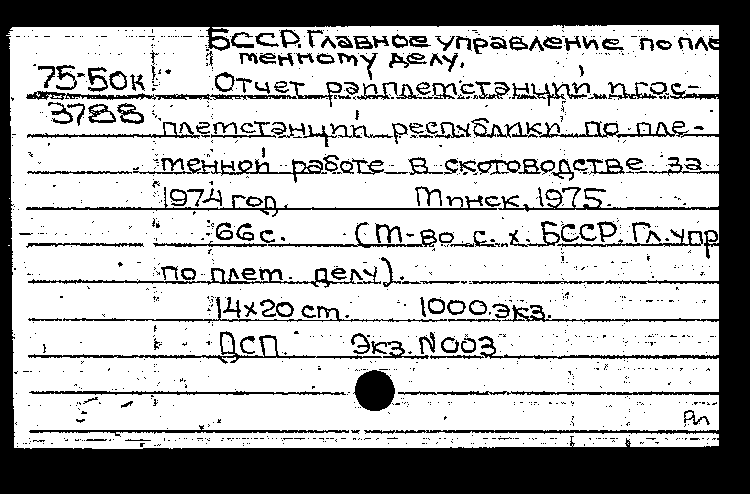 БССР. Главное управление по пле
менному делу.
75-50к Отчет райплемстанций и гос-
3788 племстанций республики по пле-
менной работе в скотоводстве за
1974 год. Минск, 1975.
66 с. (М-во с. х. БССР. Гл. упр
по плем. делу).
14х20 см. 1000 экз.
ДСП. Экз. N 003